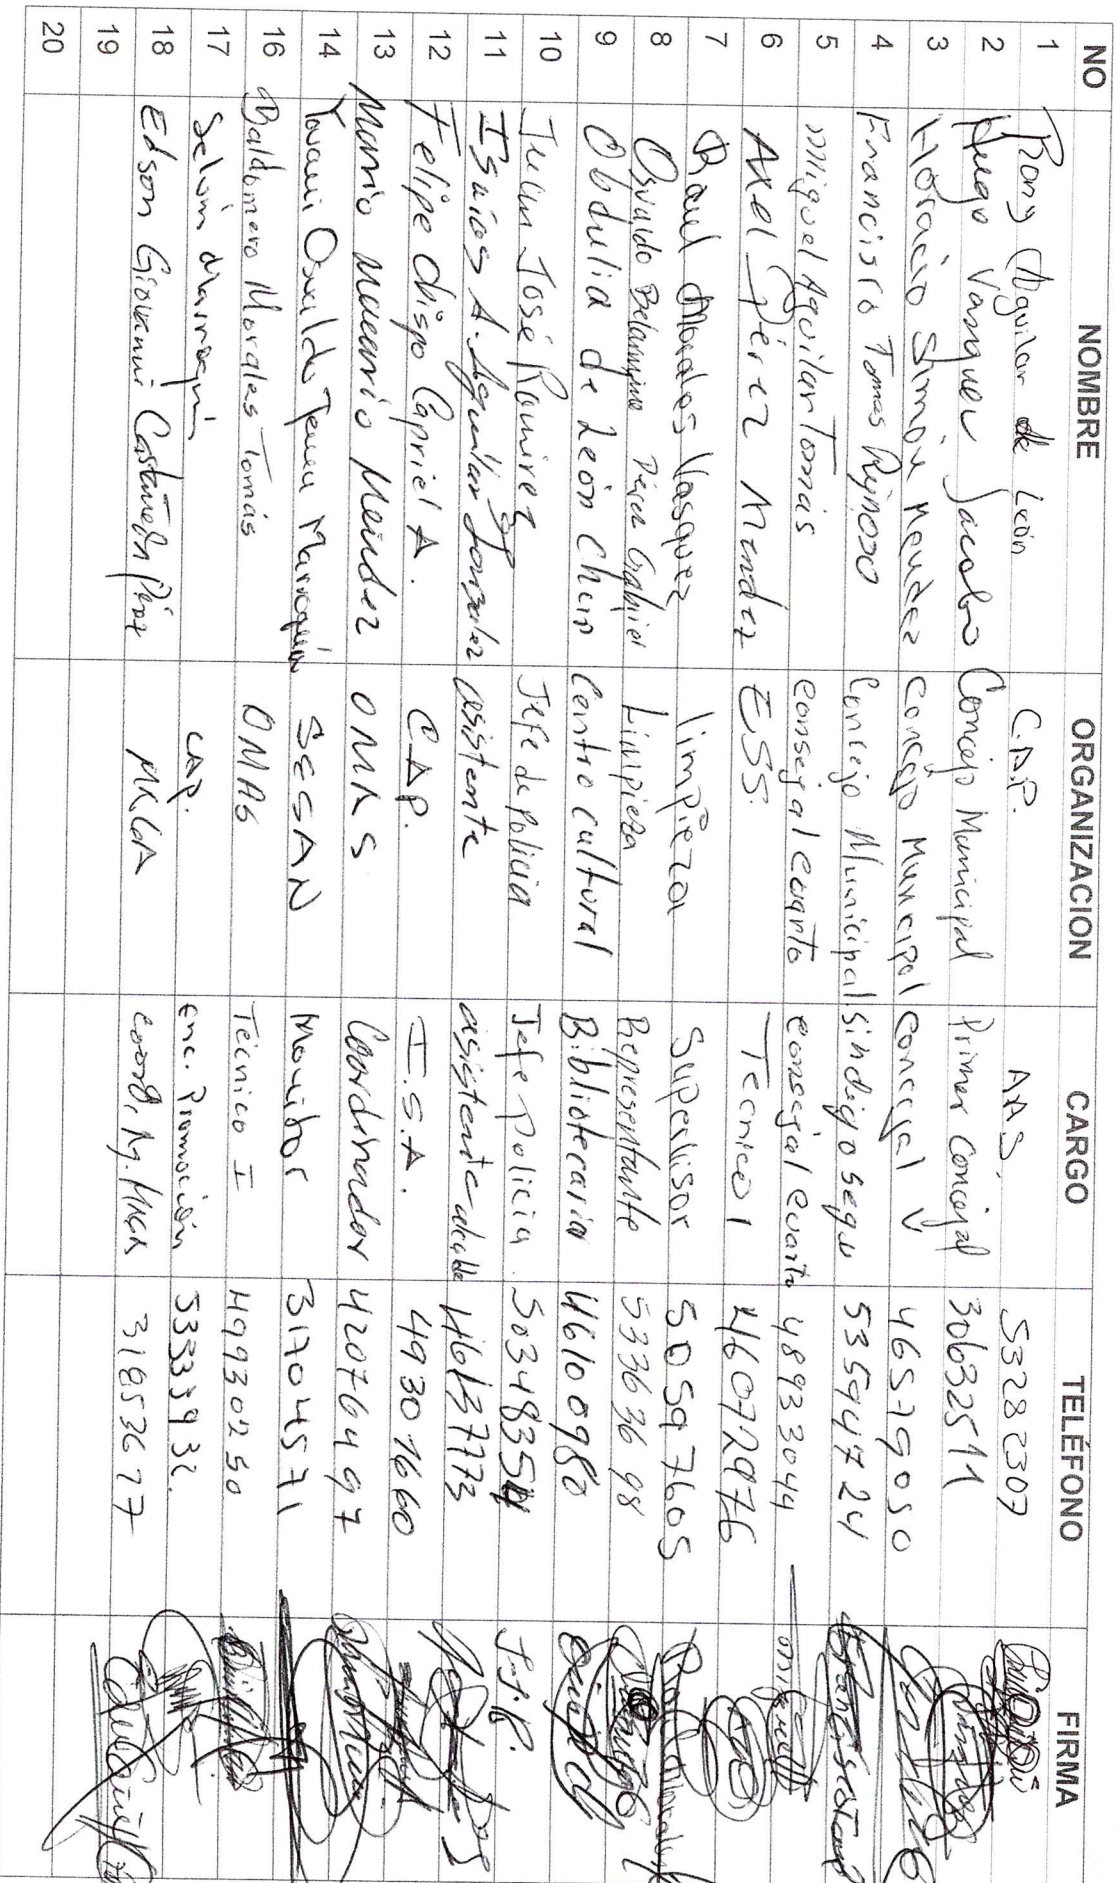 NO NOMBRE ORGANIZACION CARGO TELÉFONO FIRMA
1 Rony Aguilar de León C.A.P. A.A.S. 53282307
2 Hugo Vasquez Jacobo Concejo Municipal Primer Concejal 30632511
3 Horacio Simón Mendez Concejo Municipal Concejal V 46579050
4 Francisco Tomas Reynoso Concejo Municipal Sindigo segu 53594724
5 miguel Aguilar Tomás consejal cuarto consejal cuarto 48933044
6 Axel Pérez Mendez ESS. Tecnico 1 46072976
7 Raul Morales Vasquez limpieza Supervisor 50597605
8 Osvaldo Pérez Gabriel Limpieza Representante 53363698
9 Obdulia de León Chin Centro Cultural Bibliotecaria 46100980
10 Juan José Ramirez Jefe de policia Jefe policia. 50348354
11 Isaías A. Aguilar Gonzalez asistente asistente alcalde 46137773
12 Felipe Chispo Capriel A. CAP. I.S.A. 49301660
13 Mario Macario Méndez OMAS Coordinador 42076497
14 Osvaldo Marroquín SESAN Monitor 31704571
16 Baldomero Morales Tomás OMAS Técnico I 49930250
17 Selvin Marroquín CAP. Enc. Promoción 53333932.
18 Edson Giovanni Castañeda Pérez MAGA 31853677
19
20
J.J.R.